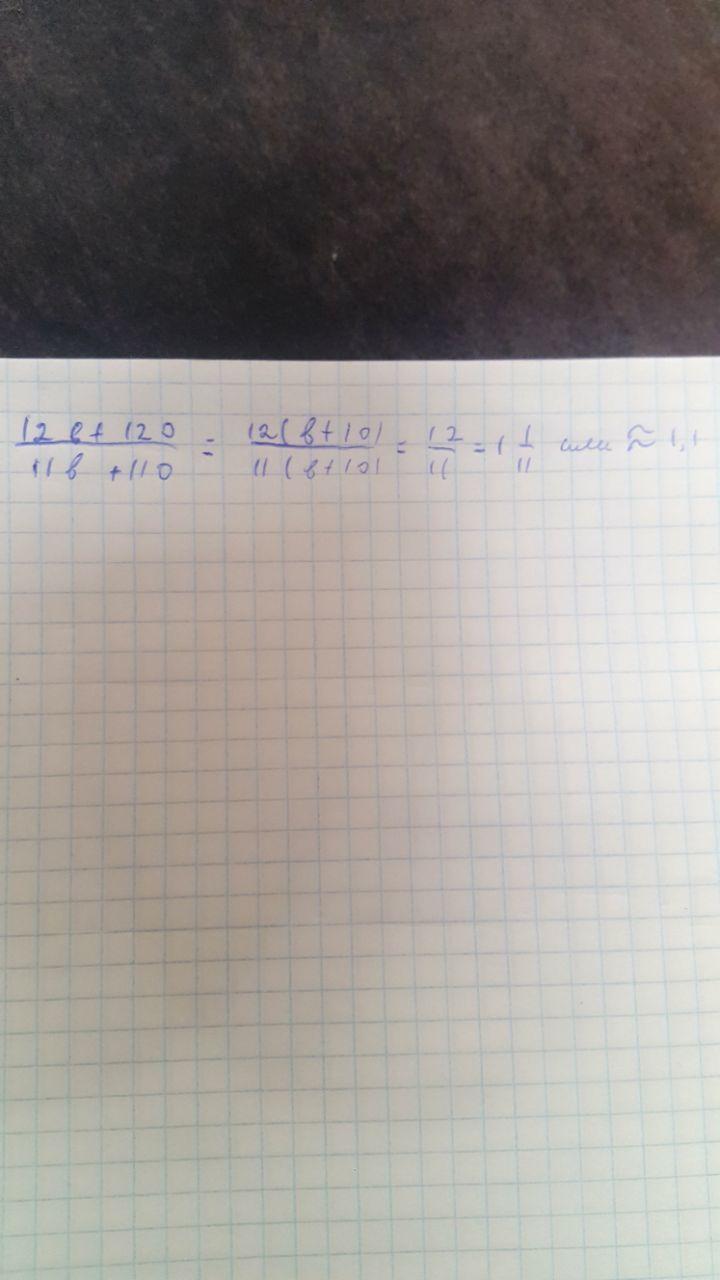 12в+120/11в+110 = 12(в+10)/11(в+10) = 12/11 = 1 1/11 или ≈ 1,1